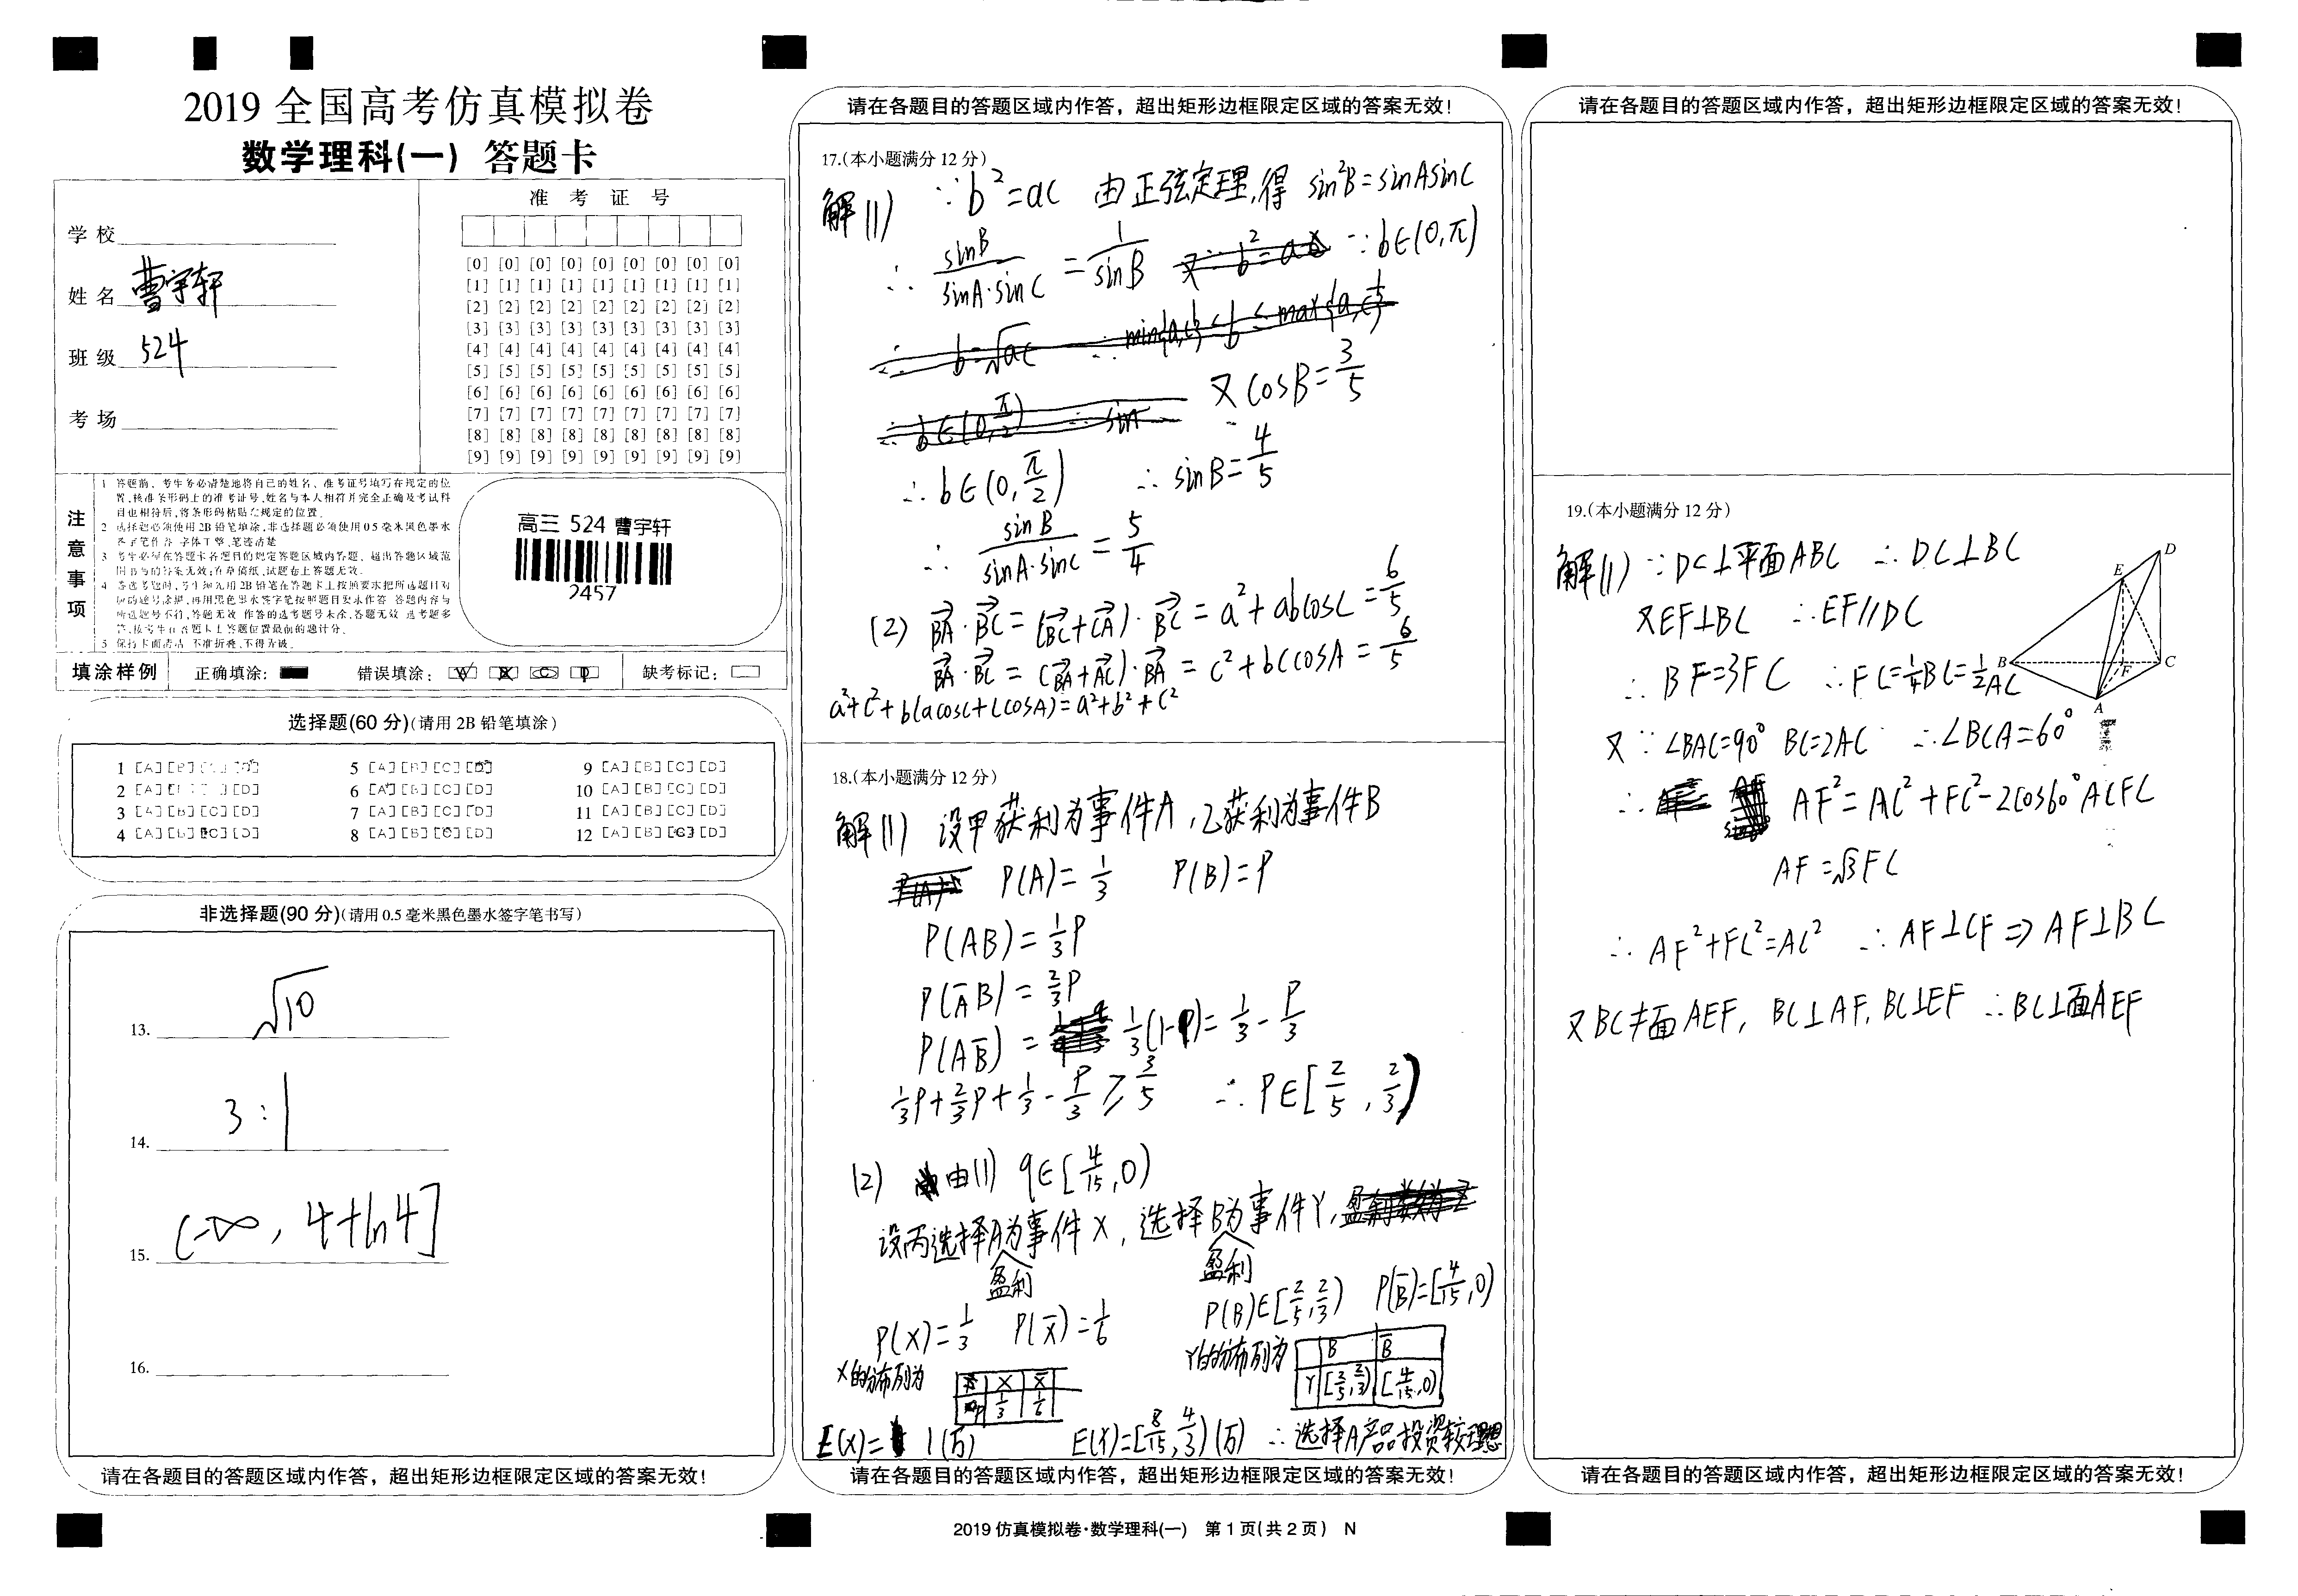 2019 全国高考仿真模拟卷
数学理科(一) 答题卡
学校
姓名 曹宇轩
班级 524
考场
准考证号
[0] [0] [0] [0] [0] [0] [0] [0] [0]
[1] [1] [1] [1] [1] [1] [1] [1] [1]
[2] [2] [2] [2] [2] [2] [2] [2] [2]
[3] [3] [3] [3] [3] [3] [3] [3] [3]
[4] [4] [4] [4] [4] [4] [4] [4] [4]
[5] [5] [5] [5] [5] [5] [5] [5] [5]
[6] [6] [6] [6] [6] [6] [6] [6] [6]
[7] [7] [7] [7] [7] [7] [7] [7] [7]
[8] [8] [8] [8] [8] [8] [8] [8] [8]
[9] [9] [9] [9] [9] [9] [9] [9] [9]
注意事项
1 答题前，考生务必清楚地将自己的姓名、准考证号填写在规定的位
置，核准条形码上的准考证号、姓名与本人相符并完全正确及考试科
目也相符后，将条形码粘贴在规定的位置。
2 选择题必须使用2B铅笔填涂，非选择题必须使用0.5毫米黑色墨水
签字笔作答 字体工整、笔迹清楚
3 考生必须在答题卡各题目的规定答题区域内答题，超出答题区域范
围书写的答案无效；在草稿纸、试题卷上答题无效。
5 保持卡面清洁 不准折叠、不得弄破。
高三 524 曹宇轩
2457
填涂样例 正确填涂： 错误填涂： 缺考标记：
选择题(60 分)(请用 2B 铅笔填涂)
1 [A] [B] [C] [D] 5 [A] [B] [C] [D] 9 [A] [B] [C] [D]
2 [A] [D] 6 [A] [B] [C] [D] 10 [A] [B] [C] [D]
3 [A] [B] [C] [D] 7 [A] [B] [C] [D] 11 [A] [B] [C] [D]
4 [A] [B] [C] [D] 8 [A] [B] [C] [D] 12 [A] [B] [C] [D]
非选择题(90 分)(请用 0.5 毫米黑色墨水签字笔书写)
13. √10
14. 3:1
15. (-∞, 4+ln4]
16.
请在各题目的答题区域内作答，超出矩形边框限定区域的答案无效！
请在各题目的答题区域内作答，超出矩形边框限定区域的答案无效！
17.(本小题满分 12 分)
解(1) ∵b²=ac 由正弦定理,得 sin²B=sinAsinC
∴ sinB/(sinA·sinC) = 1/sinB ∵b∈(0,π)
又cosB=3/5
∴b∈(0,π/2) ∴sinB=4/5
∴ sinB/(sinA·sinC) = 5/4
(2) BA·BC=(BC+CA)·BC=a²+abcosC=6/5
BA·BC=(BA+AC)·BA=c²+bccosA=6/5
a²+c²+b(acosC+ccosA)=a²+b²+c²
18.(本小题满分 12 分)
解(1) 设甲获利为事件A,乙获利为事件B
P(A)=1/3 P(B)=P
P(AB)=1/3P
P(A̅B)=2/3P
P(AB̅)=1/3(1-P)=1/3-P/3
1/3P+2/3P+1/3-P/3≥3/5 ∴P∈[2/5,2/3)
(2) 由(1) q∈[4/15,0)
设丙选择A盈利为事件X,选择B盈利为事件Y,
P(X)=1/3 P(X̅)=1/6 P(B)∈[2/5,2/3) P(B̅)=[4/15,0)
X的分布列为 X X̅ P 1/3 1/6
Y的分布列为 B B̅ Y [2/5,2/3) [4/15,0)
E(X)=1(万) E(Y)=[8/15,4/3)(万) ∴选择A产品投资较理想
请在各题目的答题区域内作答，超出矩形边框限定区域的答案无效！
2019 仿真模拟卷·数学理科(一) 第 1 页(共 2 页) N
请在各题目的答题区域内作答，超出矩形边框限定区域的答案无效！
19.(本小题满分 12 分)
解(1) ∵DC⊥平面ABC ∴DC⊥BC
又EF⊥BC ∴EF//DC
∴BF=3FC ∴FC=1/4BC=1/2AC
又∵∠BAC=90° BC=2AC ∴∠BCA=60°
∴AF²=AC²+FC²-2cos60°ACFC
AF=√3FC
∴AF²+FC²=AC² ∴AF⊥CF⇒AF⊥BC
又BC≠面AEF, BC⊥AF,BC⊥EF ∴BC⊥面AEF
D
E
B
C
F
A
请在各题目的答题区域内作答，超出矩形边框限定区域的答案无效！